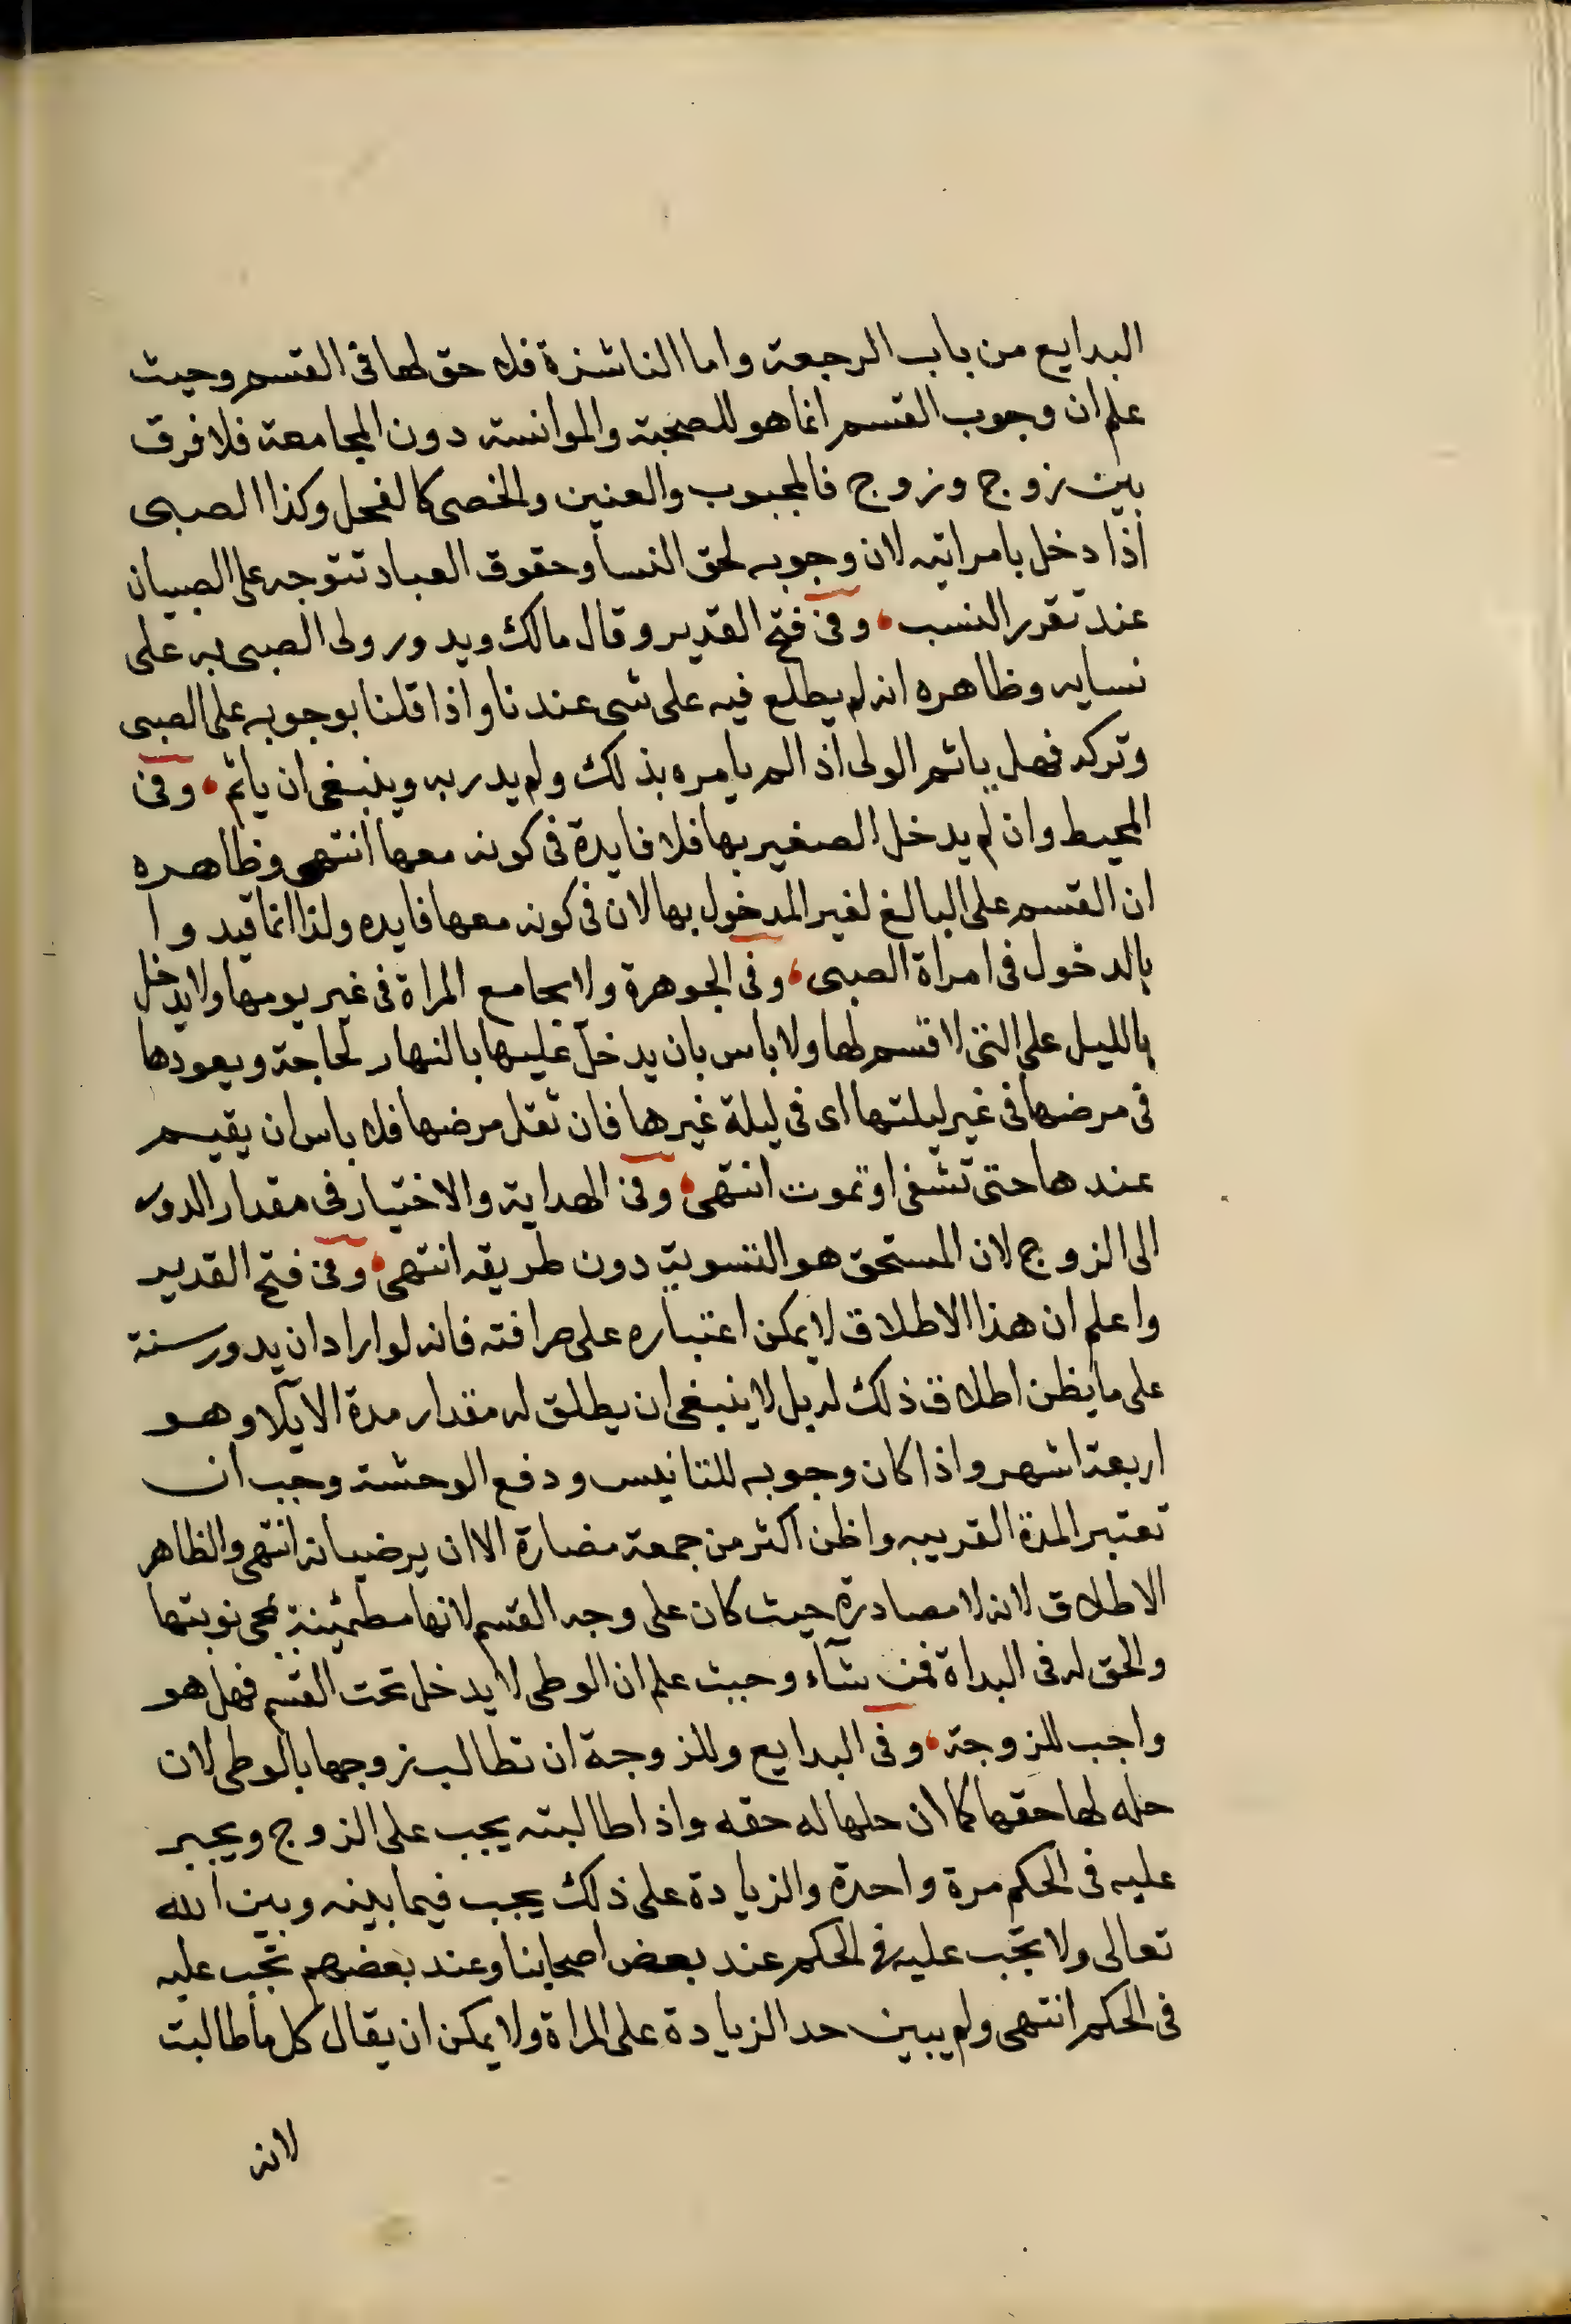 البدايع من باب الرجعة واما الناشزة فلا حق لها فى القسم وحيث
علم ان وجوب القسم انما هو للصحبة والموانسة دون المجامعة فلا فرق
بين زوج وزوج فالمجبوب والعنين والخصى كالفحل وكذا الصبى
اذا دخل بامراتيه لان وجوبه لحق النسا وحقوق العباد تتوجه على الصبيان
عند تقرر النسب وفى فتح القدير وقال مالك ويدور ولى الصبى به على
نسايه وظاهره انه لم يطلع فيه على شى عندنا واذا قلنا بوجوبه على الصبى
وتركه فهل ياثم الولى اذا لم يامره بذلك ولم يدر به وينبغى ان ياثم وفى
المحيط وان لم يدخل الصغير بها فلا فايدة فى كونه معها انتهى وظاهره
ان القسم على البالغ لغير المدخول بها لان فى كونه معها فايده ولذا انما قيدوا
بالدخول فى امراة الصبى وفى الجوهرة ولا يجامع المراة فى غير يومها ولا يدخل
بالليل على التى لا قسم لها ولا باس بان يدخل عليها بالنهار لحاجة ويعودها
فى مرضها فى غير ليلتها اى فى ليلة غيرها فان ثقل مرضها فلا باس ان يقيم
عندها حتى تشفى او تموت انتهى وفى الهداية والاختيار فى مقدار الدور
الى الزوج لان المستحق هو التسوية دون طريقه انتهى وفى فتح القدير
واعلم ان هذا الاطلاق لا يمكن اعتباره على صرافته فانه لو اراد ان يدور سنة
على ما يظن اطلاق ذلك له بل لا ينبغى ان يطلق له مقدار مدة الايلا وهو
اربعة اشهر واذا كان وجوبه للتانيس ودفع الوحشة وجب ان
تعتبر المدة القريبه واظن اكثر من جمعة مضارة الا ان يرضيا نه انتهى والظاهر
الاطلاق لانه لا مصادرة حيث كان على وجه القسم لانها مطمئنة بمجى نوبتها
والحق له فى البداة فمن شآء وحيث علم ان الوطى لا يدخل تحت القسم فهل هو
واجب للزوجة وفى البدايع وللزوجة ان تطالب زوجها بالوطى لان
حله لها حقها كما ان حلها له حقه واذا طالبته يجب على الزوج ويجبر
عليه فى الحكم مرة واحدة والزيادة على ذلك يجب فيما بينه وبين الله
تعالى ولا تجب عليه فى الحكم عند بعض اصحابنا وعند بعضهم تجب عليه
فى الحكم انتهى ولم يبين حد الزيادة على المراة ولا يمكن ان يقال كل ما طالبت
لانه